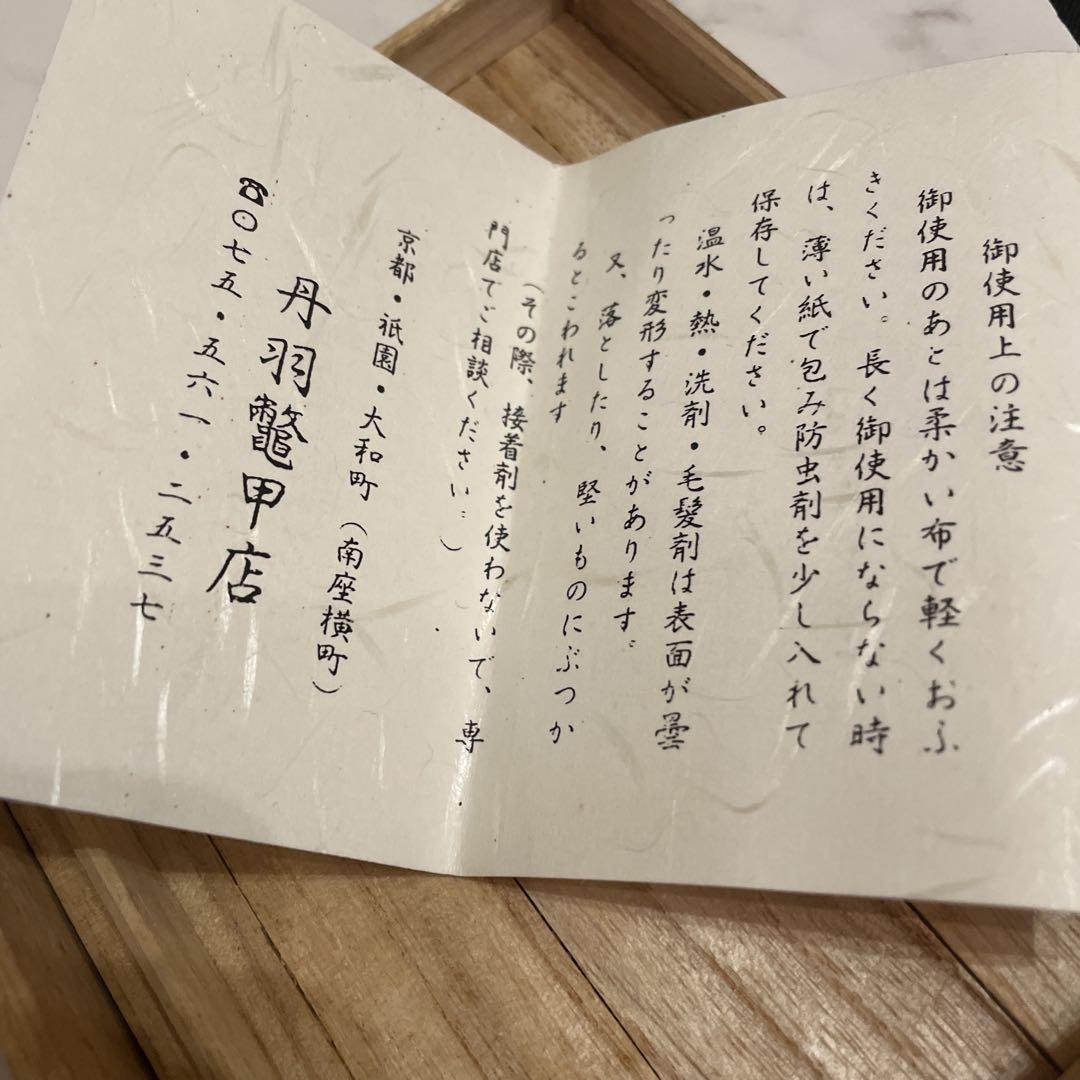 御使用上の注意
御使用のあとは柔かい布で軽くおふ
きください。長く御使用にならない時
は、薄い紙で包み防虫剤を少し入れて
保存してください。
温水・熱・洗剤・毛髪剤は表面が曇
ったり変形することがあります。
又、落としたり、堅いものにぶつか
るとこわれます
(その際、接着剤を使わないで、専
門店でご相談ください。)
京都・祇園・大和町(南座横町)
丹羽鼈甲店
☎〇七五・五六一・二五三七